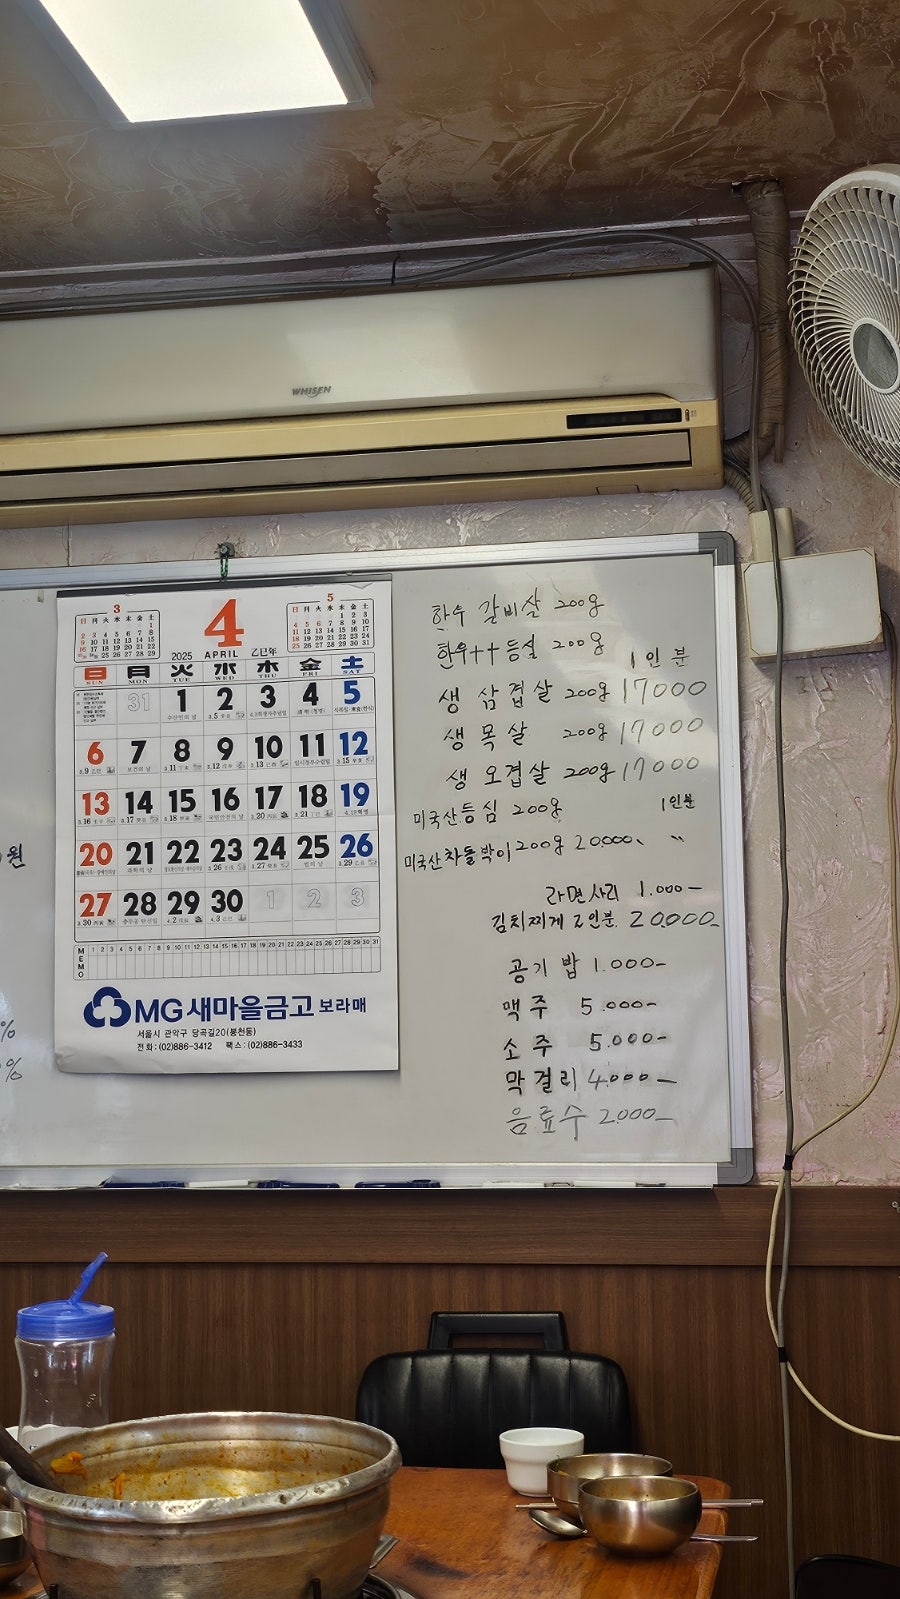 WHISEN
한우 갈비살 200g
한우++등심 200g
1인분
생 삼겹살 200g 17000
생 목살 200g 17000
생 오겹살 200g 17000
미국산등심 200g 1인분
미국산차돌박이200g 20.000. "
라면사리 1.000-
김치찌게 2인분 20.000-
공기밥 1.000-
맥주 5.000-
소주 5.000-
막걸리 4.000-
음료수 2.000-
원
%
%
3
4
5
2025 APRIL 乙巳年
日 月 火 水 木 金 土
SUN MON TUE WED THU FRI SAT
31 1 2 3 4 5
6 7 8 9 10 11 12
13 14 15 16 17 18 19
20 21 22 23 24 25 26
27 28 29 30 1 2 3
MEMO
1 2 3 4 5 6 7 8 9 10 11 12 13 14 15 16 17 18 19 20 21 22 23 24 25 26 27 28 29 30 31
MG새마을금고 보라매
서울시 관악구 당곡길20(봉천동)
전화:(02)886-3412 팩스:(02)886-3433